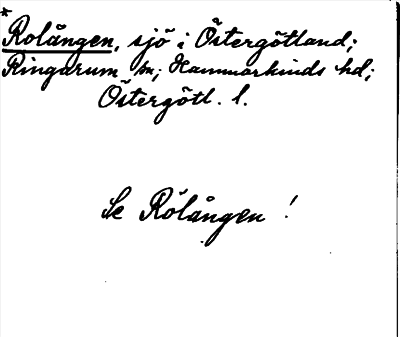 *
Rolången, sjö i Östergötland;
Ringarum sn; Hammarkinds hd;
Östergötl. l.
Se Rölången!